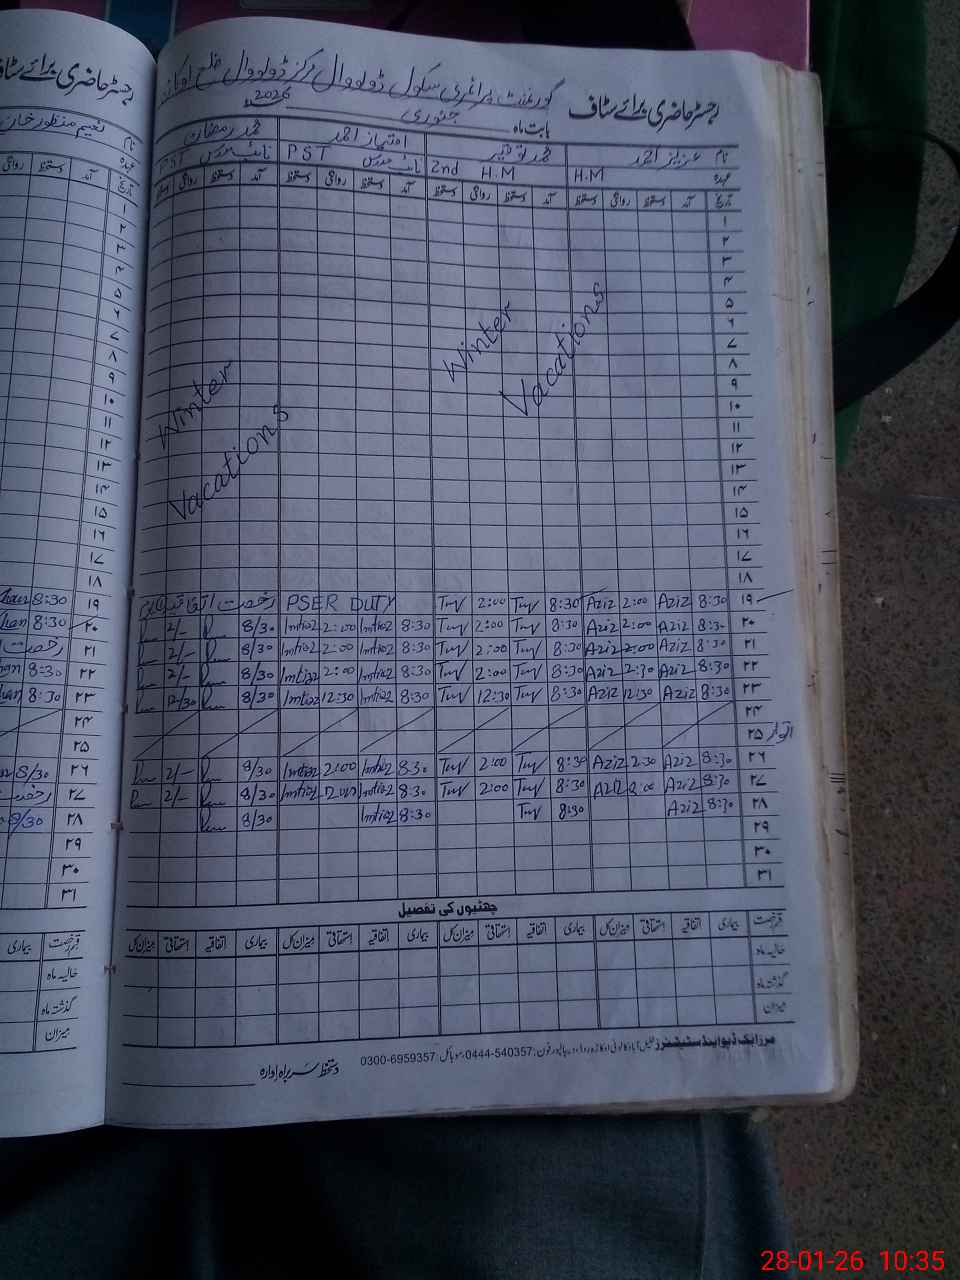 رجسٹر حاضری برائے سٹاف گورنمنٹ پرائمری سکول ڈولووال مرکز ڈولووال ضلع اوکاڑہ
بابت ماہ جنوری 2026
نام عزیز احمد محمد توقیر امتیاز احمد محمد رمضان
عہدہ H.M 2nd H.M PST PST
تاریخ آمد دستخط روانگی دستخط آمد دستخط روانگی دستخط آمد دستخط روانگی دستخط آمد دستخط روانگی دستخط
۱
۲
۳
۴
۵
۶
۷
۸
۹
۱۰
۱۱
۱۲
۱۳
۱۴
۱۵
۱۶
۱۷
۱۸
Winter Vacations
Winter Vacations
۱۹ 8:30 Aziz 2:00 Aziz 8:30 2:00 PSER DUTY رخصت اتفاقیہ
۲۰ 8:30 Aziz 2:00 Aziz 8:30 2:00 8:30 Imtiaz 2:00 Imtiaz 8/30 2/-
۲۱ 8:30 Aziz 2:00 Aziz 8:30 2:00 8:30 Imtiaz 2:00 Imtiaz 8/30 2/-
۲۲ 8:30 Aziz 2:30 Aziz 8:30 2:00 8:30 Imtiaz 2:00 Imtiaz 8/30 2/-
۲۳ 8:30 Aziz 12:30 Aziz 8:30 12:30 8:30 Imtiaz 12:30 Imtiaz 8/30 12/30
۲۴
۲۵ اتوار
۲۶ 8:30 Aziz 2:30 Aziz 8:30 2:00 8:30 Imtiaz 2:00 Imtiaz 8/30 2/-
۲۷ 8:30 Aziz 2:00 Aziz 8:30 2:00 8:30 Imtiaz 2:00 Imtiaz 8/30 2/-
۲۸ 8:30 Aziz 8:30 8:30 Imtiaz 8/30
۲۹
۳۰
۳۱
چھٹیوں کی تفصیل
قسم رخصت بیماری اتفاقیہ استحقاقی میزان کل بیماری اتفاقیہ استحقاقی میزان کل بیماری اتفاقیہ استحقاقی میزان کل بیماری اتفاقیہ استحقاقی میزان کل
حالیہ ماہ
گذشتہ ماہ
میزان
مرزا بک ڈپو اینڈ سٹیشنرز فون: 0444-540357 موبائل: 0300-6959357
دستخط سربراہ ادارہ
رجسٹر حاضری برائے سٹاف
نام نعیم منظور خان
عہدہ
تاریخ آمد دستخط روانگی
۱
۲
۳
۴
۵
۶
۷
۸
۹
۱۰
۱۱
۱۲
۱۳
۱۴
۱۵
۱۶
۱۷
۱۸
۱۹ 8:30
۲۰ 8:30
۲۱ رخصت
۲۲ 8:30
۲۳ 8:30
۲۴
۲۵
۲۶ 8/30
۲۷ رخصت
۲۸ 8/30
۲۹
۳۰
۳۱
قسم رخصت بیماری
حالیہ ماہ
گذشتہ ماہ
میزان
28-01-26 10:35